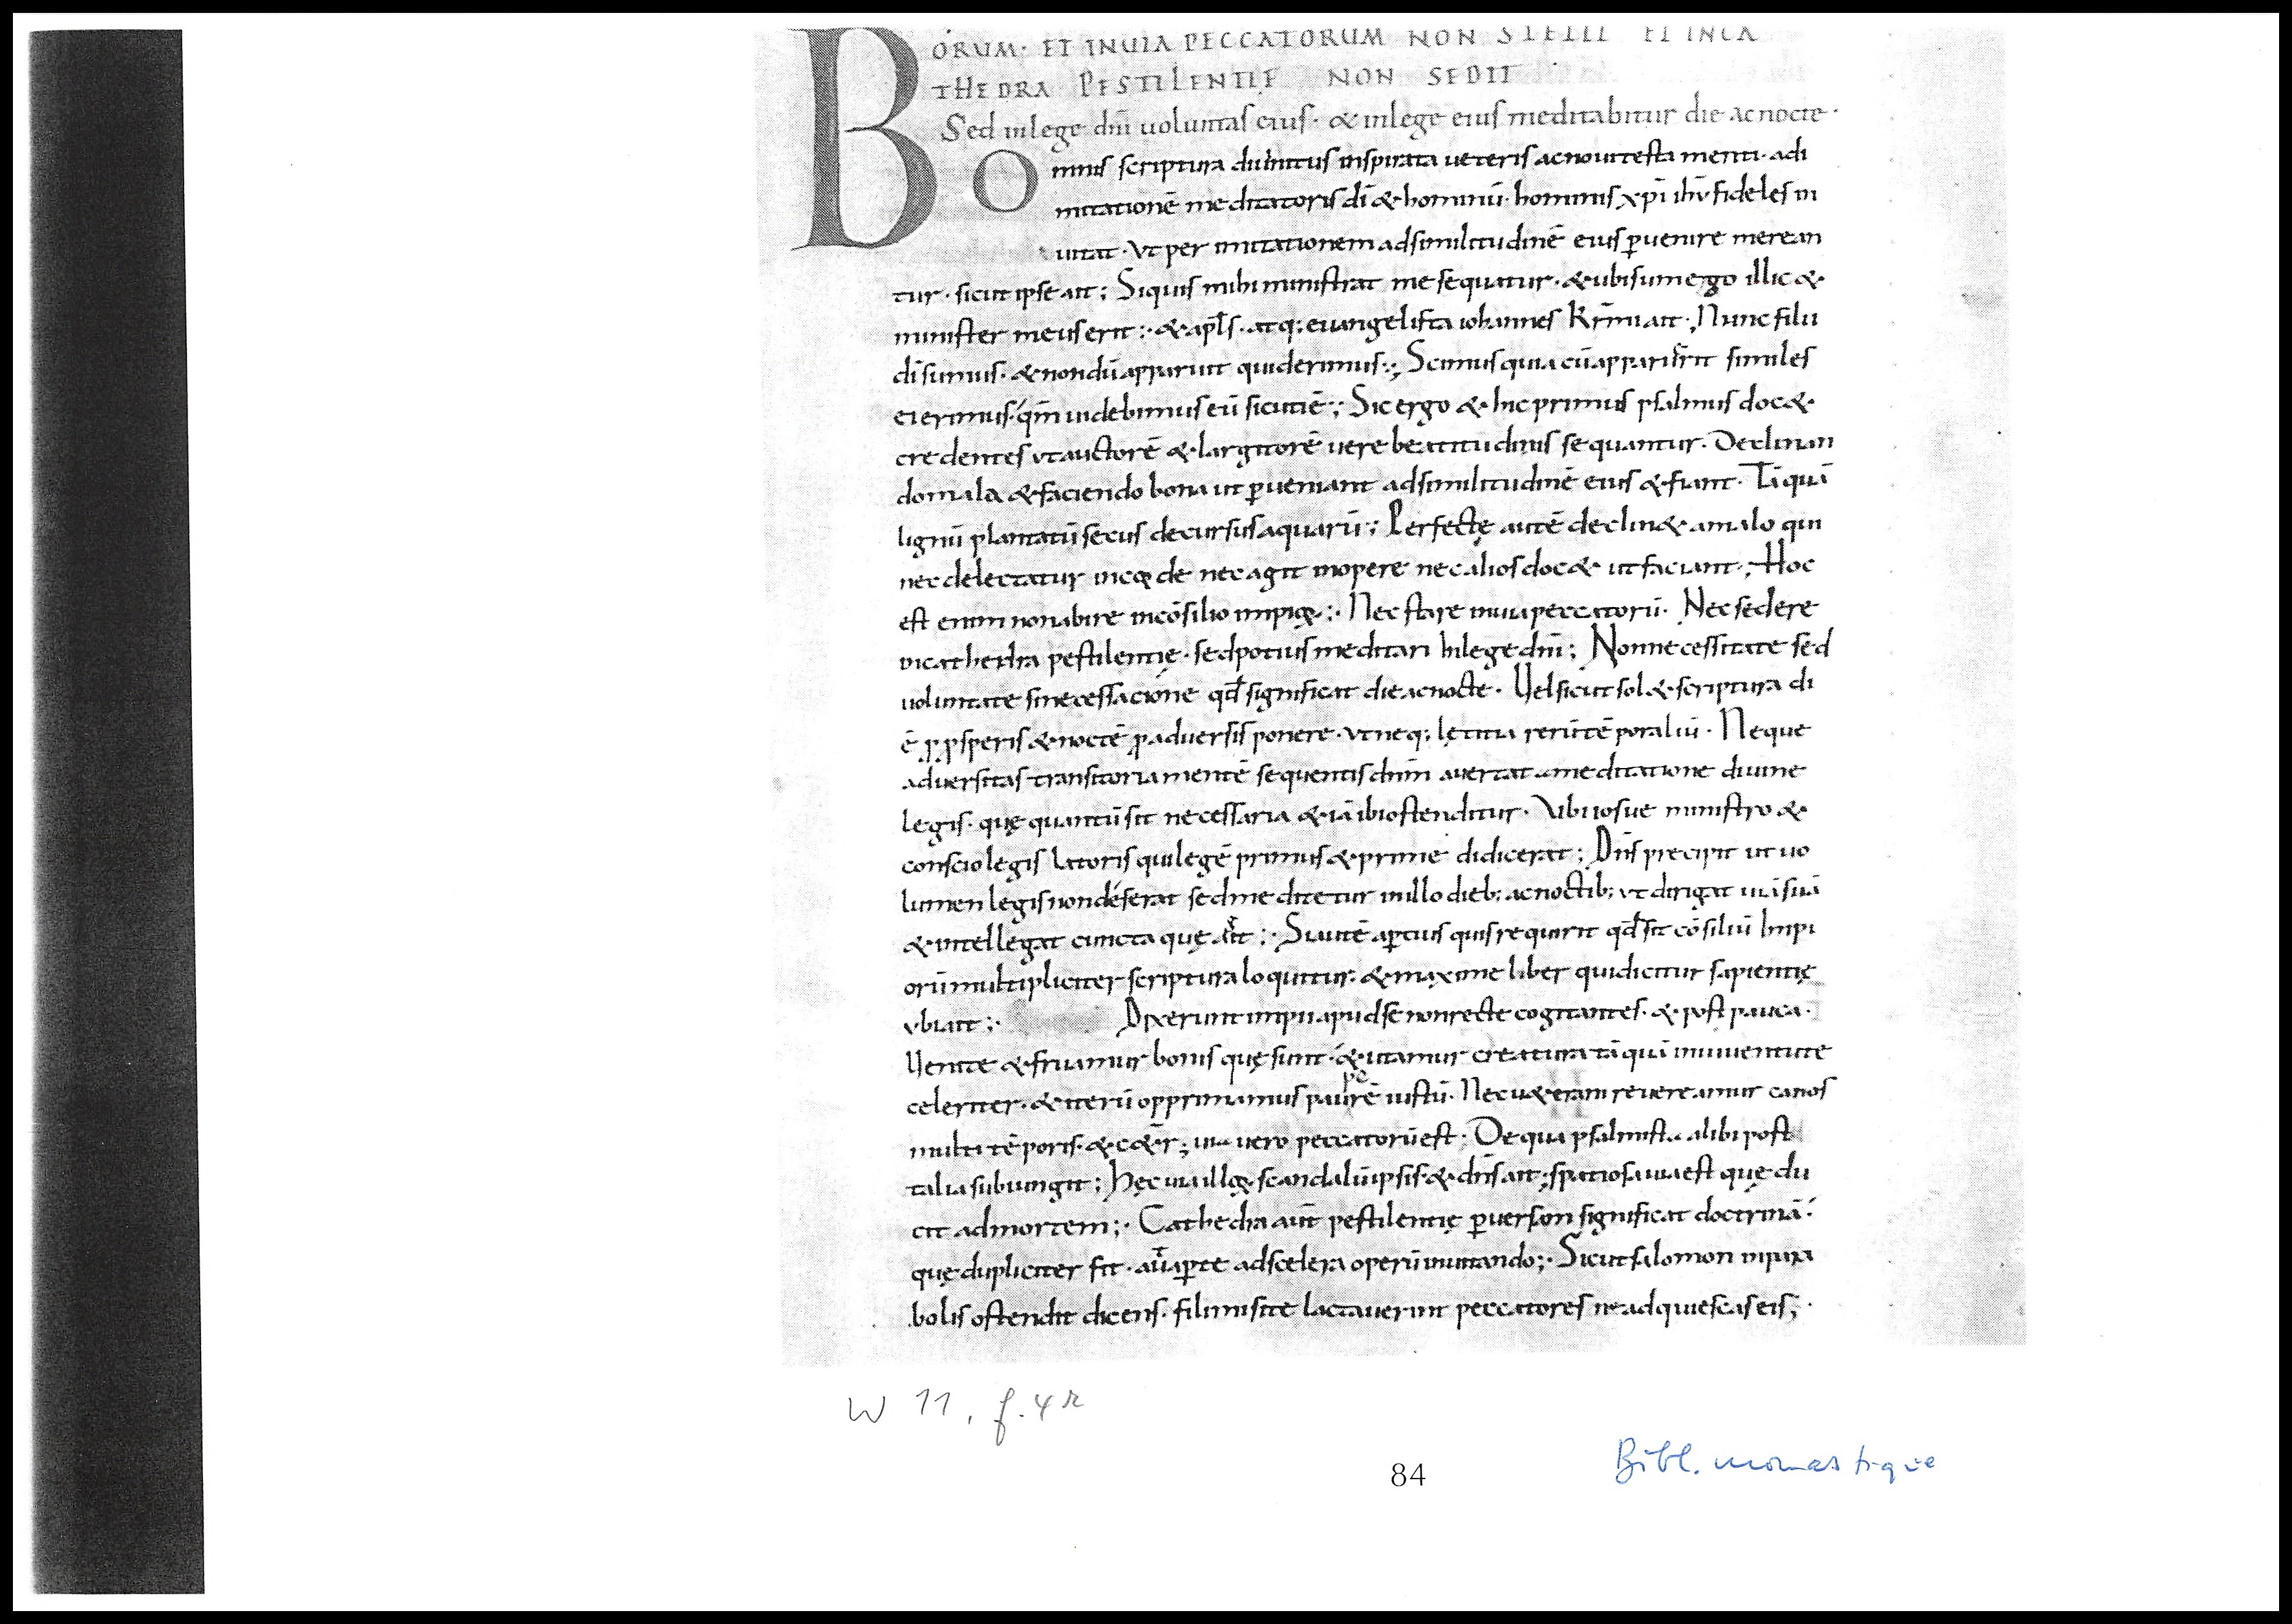 B ORUM· ET INUIA PECCATORUM NON STETIT ET INCA
THEDRA PESTILENTIĘ NON SEDIT
Sed inlege dn̄i uoluntas eius· & inlege eius meditabitur die ac nocte·
Omnis scriptura diuinitus inspirata ueteris acnoui testamenti· adi
mitationē meditatoris dī & hominū· hominis xp̄i ih̄u fideles in
uitat· Vt per imitationem adsimilitudinē eius ꝑuenire merean
tur· sicut ipse ait; Siquis mihi ministrat me sequatur· & ubisum ego illic &
minister meus erit:· & apl̄s· atq; euangelista iohannes kr̄mi ait·; Nunc filii
dī sumus· & nondū apparuit quid erimus:; Scimus quia cū apparuerit similes
ei erimus· qm̄ uidebimus eū sicuti ē:; Sic ergo & hic primus psalmus doc&·
credentes ut auctorē & largitorē uere beatitudinis sequantur· Declinan
do mala & faciendo bona ut ꝑueniant adsimilitudinē eius & fiant· Tā quā
lignū plantatū secus decursus aquarū; Perfectę autē declin& amalo qui
nec delectatur in eo de nec agit inopere nec alios doc& ut faciant·; Hoc
est enim non abire incōsilio impio;· Nec stare inuia peccatorū· Nec sedere
incathedra pestilentię· sed potius meditari inlege dn̄i; Non necessitate sed
uoluntate sine cessacione qd̄ significat die ac nocte· Uel sicut sol & scriptura di
ē ꝓ ꝓsperis & noctē ꝓ aduersis ponere· ut neq; lętitia rerū tēporaliū· Neque
aduersitas transitoria mentē sequentis dnm̄ auertat a meditatione diuine
legis· quę quantū sit necessaria & iā ibi ostenditur· Vbi iosue ministro &
conscio legis latoris qui legē primus & prime didicerat; Dn̄s precipit ut uo
lumen legis non deferat sed meditetur inillo dieb; ac noctib; ut dirigat uiā suā
& intellegat cuncta quę ait;· Siautē aꝑtius quis requirit qd̄ sit cōsiliū Impi
orū multipliciter scriptura loquitur· & maxime liber qui dicitur sapientię
ubi ait;· Dixerunt impii apud se non recte cogitantes· & post pauca·
Uenite & fruamur bonis quę sunt· & utamur creatura tā quā iniuuentute
celeriter· & iterū opprimamus pauperē iustū· Nec u&erani reuereamur canos
multi tēporis· & c&r̄; uia uero peccatorū est· De qua psalmista alibi post
talia subiungit; Hęc uia illoꝝ scandalū ipsis· & dn̄s ait; spatiosa uia est quę du
cit admortem;· Cathedra aūt pestilentię ꝑuersam significat doctrinā·
quę dupliciter fit· aūt aꝑte adscelera operū inuitando;· Sicut salomon inpara
bolis ostendit dicens· fili mi si te lactauerint peccatores ne adquiescas eis;·
W 11, f. 4r
84
Bibl. monastique